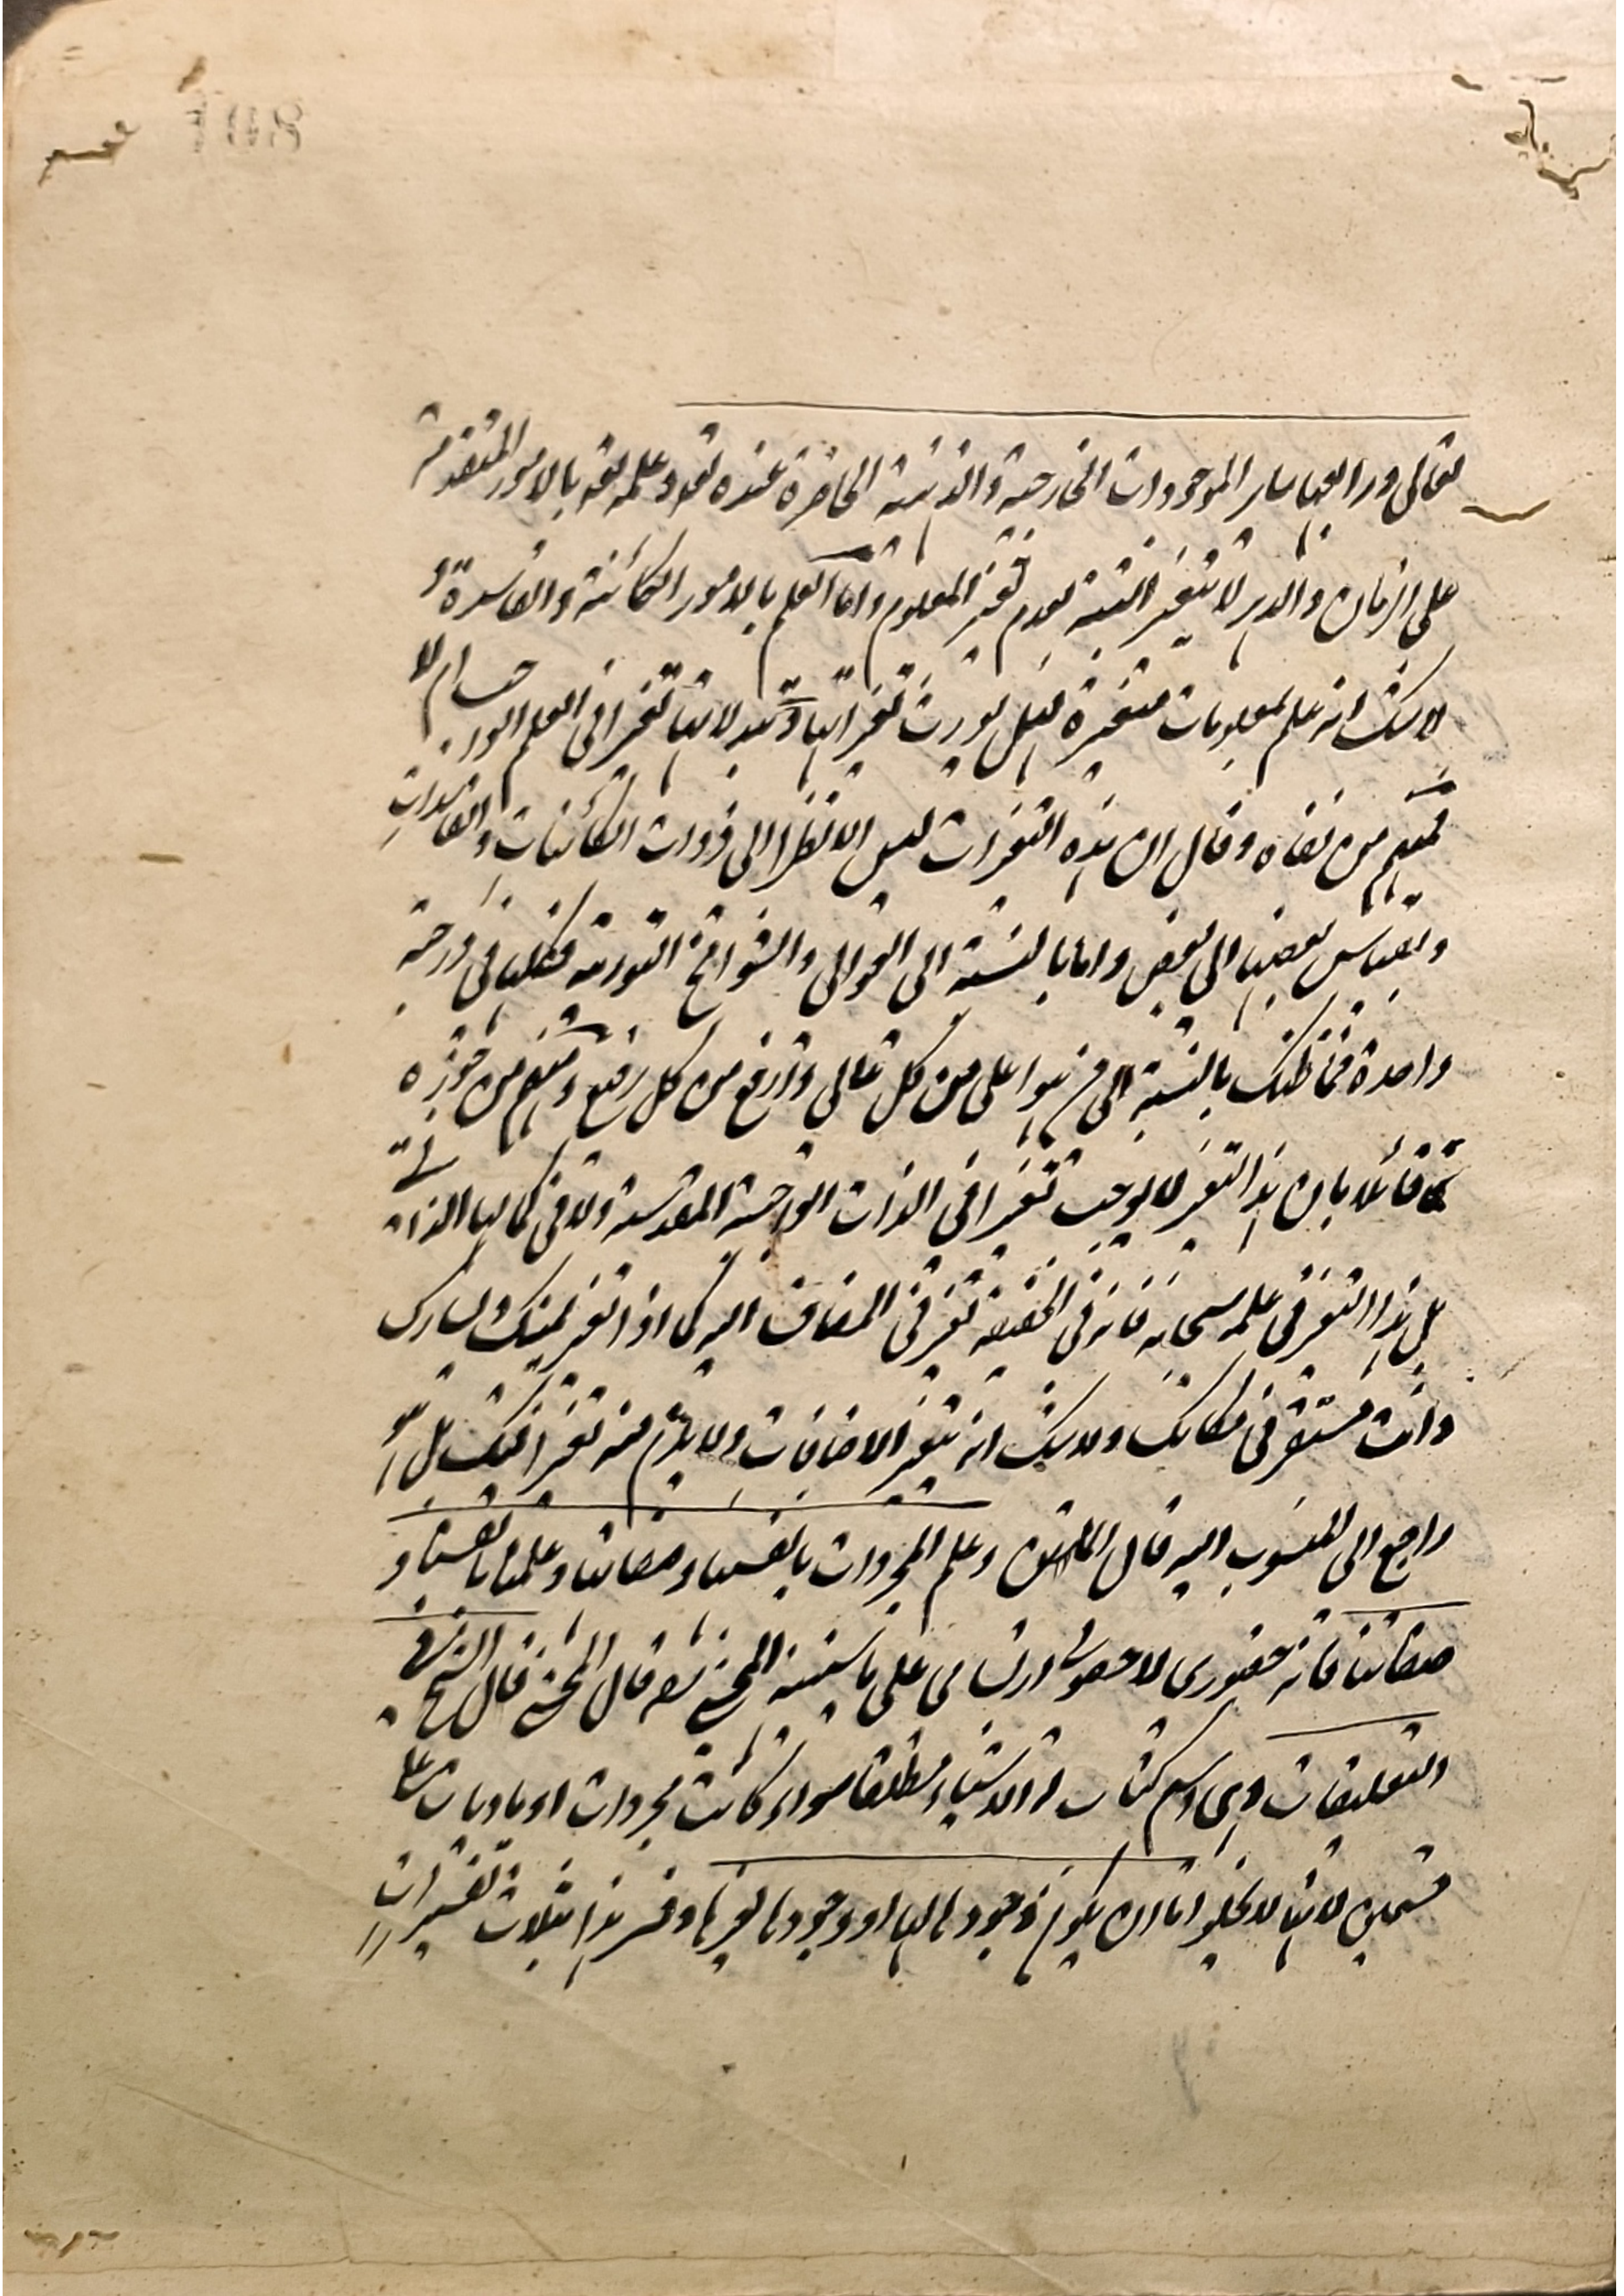 تعالى ورابعها سائر الموجودات الخارجية والذهنية الحاضرة عنده تعه وعلمه تعه بالامور المتقدمة
على الزمان والدهر لا يتغير البتة لعدم تغير المعلوم واما العلم بالامور الكائنة والفاسدة و
لا شك انه علم بمعلومات متغيرة فهل يورث تغيراتها وتبدلاتها تغيرا فى العلم ام لا
فمنهم من نفاه وقال ان هذه التغيرات ليس الا نظرا الى ذوات الكائنات والفاسدات
وبقياس بعضها الى بعض واما بالنسبة الى العوالى والشوامخ النورية فكلها فى درجة
واحدة فما ظنك بالنسبة الى من هو اعلى من كل عالى وارفع من كل رفيع ومنهم من جوزه
قائلا بان هذا التغير لا يوجب تغيرا فى الذات الواجبة المقدسة ولا فى كمالها الذاتى
بل هذا التغير فى علمه سبحانه فانه فى الحقيقة تغير فى المضاف اليه كما اذا تغير يمينك ويسارك
وانت مستقر فى مكانك ولا شك انه يتغير الاضافات ولا يلزم منه تغيرا فيك بل هو
راجع الى المنسوب اليه قال الماتن وعلم المجردات بانفسها وصفاتها وعلمنا بانفسنا و
صفاتنا فانه حضورى لا حصولى ارتسامى على ما سيبينه المحشى نعم قال المحشى قال الشيخ فى
التعليقات وهى اسم كتاب له الاشياء مطلقا سواء كانت مجردات او ماديات على
قسمين لانها لا يخلو اما ان يكون وجودها لها او وجودها لغيرها وفسر هذا بثلاث تفسيرات